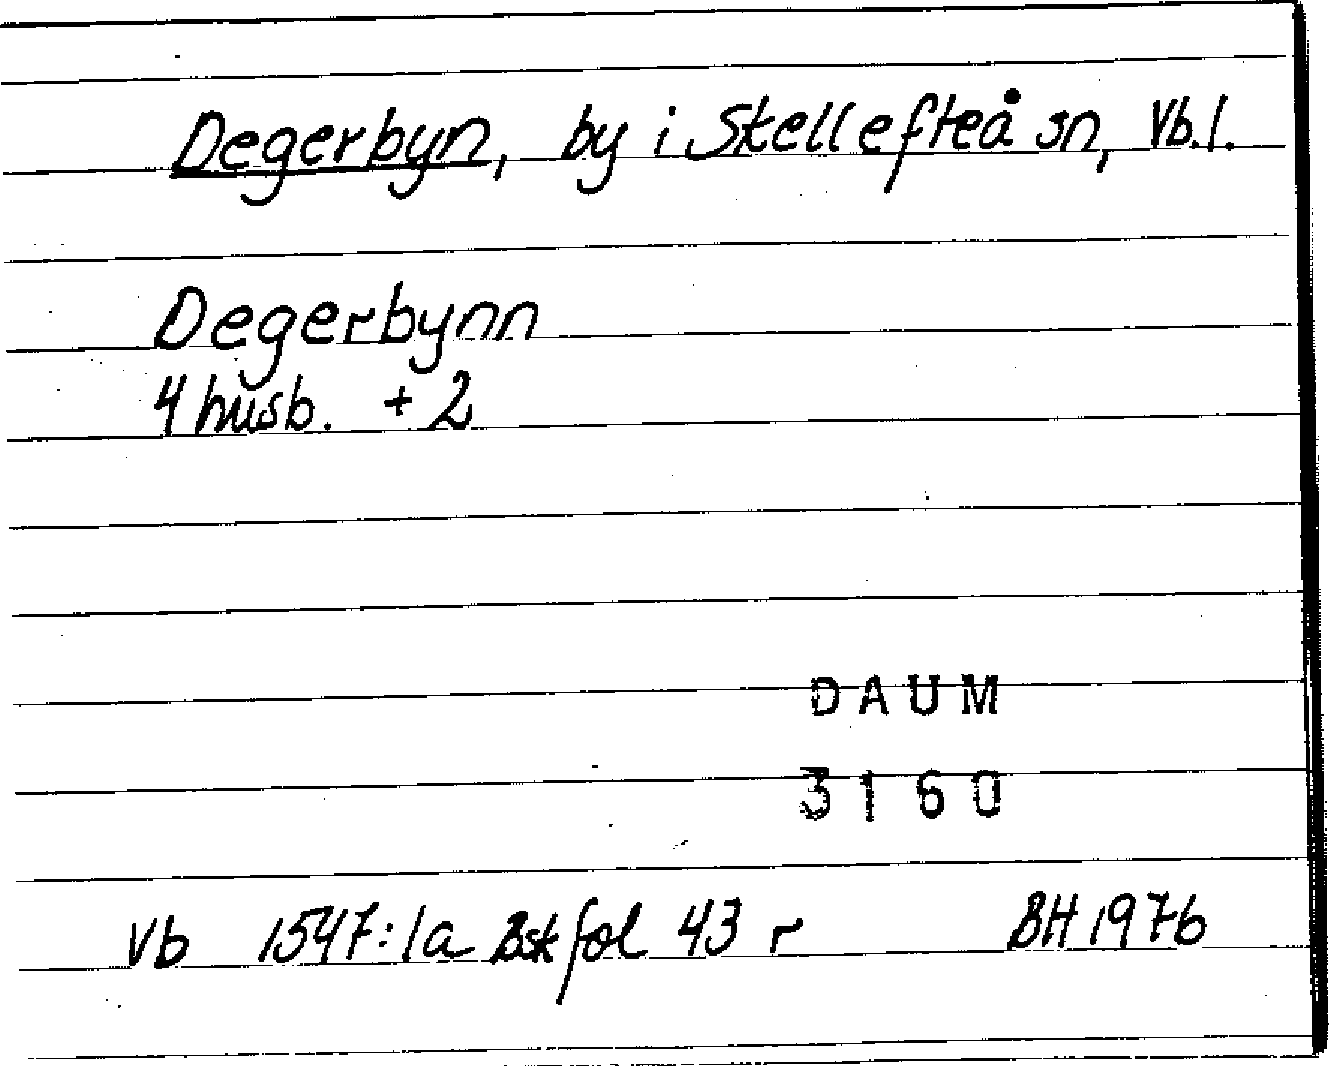 Degerbyn, by i Skellefteå sn, Vb.l.
Degerbynn
4 husb. + 2
DAUM
3160
Vb 1547:1a Bsk fol 43 r BH 1976